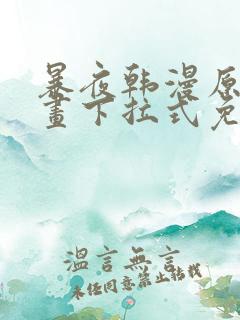 暴夜韩漫原
畫下拉式免
溫言無言
未经同意禁止转载